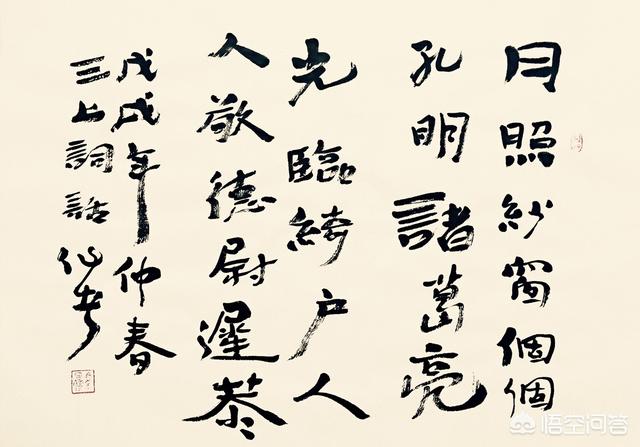 月照紗窗個個
孔明諸葛亮
光臨綺户人
人敬德尉遲恭
戊戌年仲春
三上詞話
悟空问答